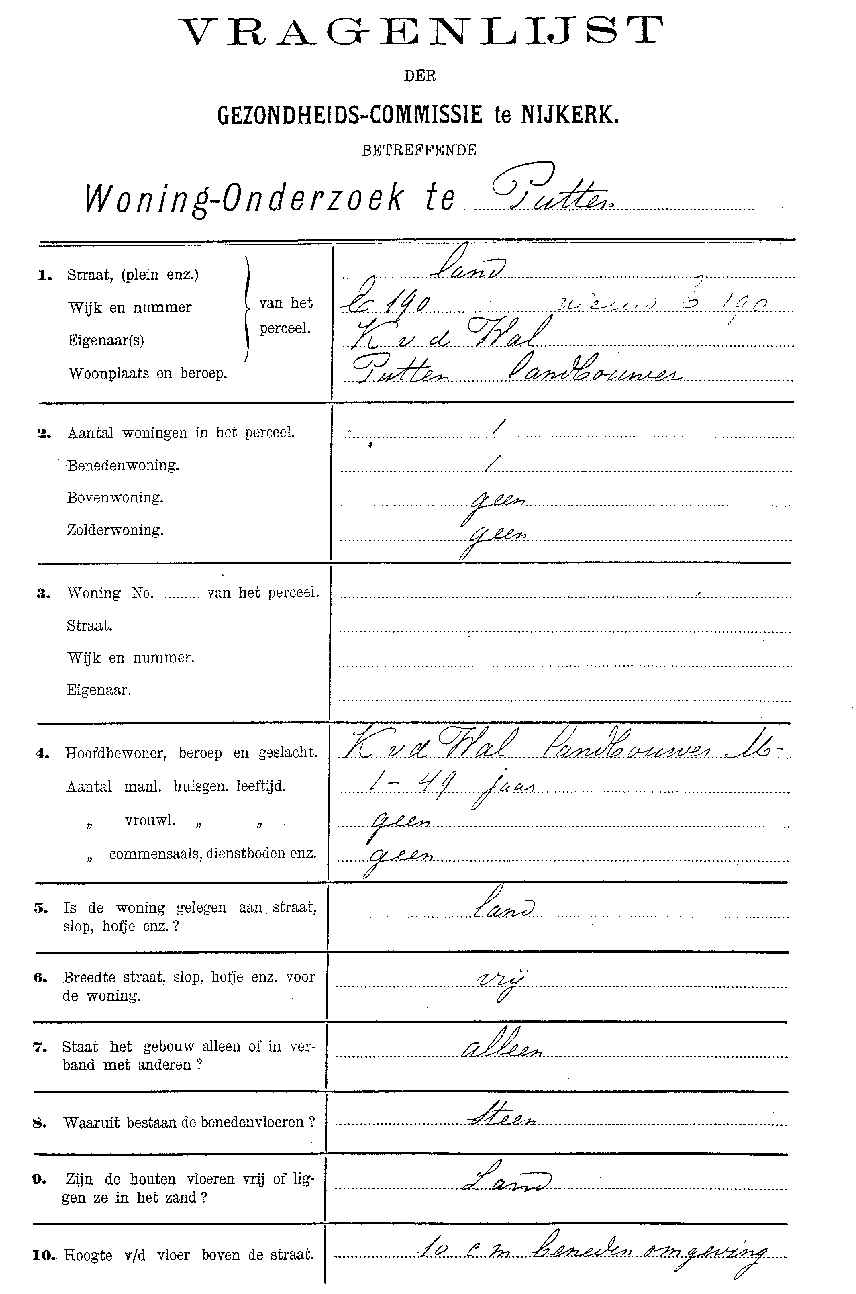 VRAGENLIJST
DER
GEZONDHEIDS-COMMISSIE te NIJKERK.
BETREFFENDE
Woning-Onderzoek te Putten
1. Straat, (plein enz.) land
Wijk en nummer van het 190 nieuw 190
perceel.
Eigenaar(s) K v d Wal
Woonplaats en beroep. Putten landbouwer
2. Aantal woningen in het perceel. 1
Benedenwoning. 1
Bovenwoning. geen
Zolderwoning. geen
3. Woning No. ......... van het perceel.
Straat.
Wijk en nummer.
Eigenaar.
4. Hoofdbewoner, beroep en geslacht. K v d Wal landbouwer M-
Aantal manl. huisgen. leeftijd. 1 - 49 jaar
„ vrouwl. „ „ . geen
„ commensaals, dienstboden enz. geen
5. Is de woning gelegen aan straat, land
slop, hofje enz.?
6. Breedte straat, slop, hofje enz. voor vrij
de woning.
7. Staat het gebouw alleen of in ver- alleen
band met anderen?
8. Waaruit bestaan de benedenvloeren? steen
9. Zijn de houten vloeren vrij of lig-
gen ze in het zand?
10. Hoogte v/d vloer boven de straat. 10 c m beneden omgeving